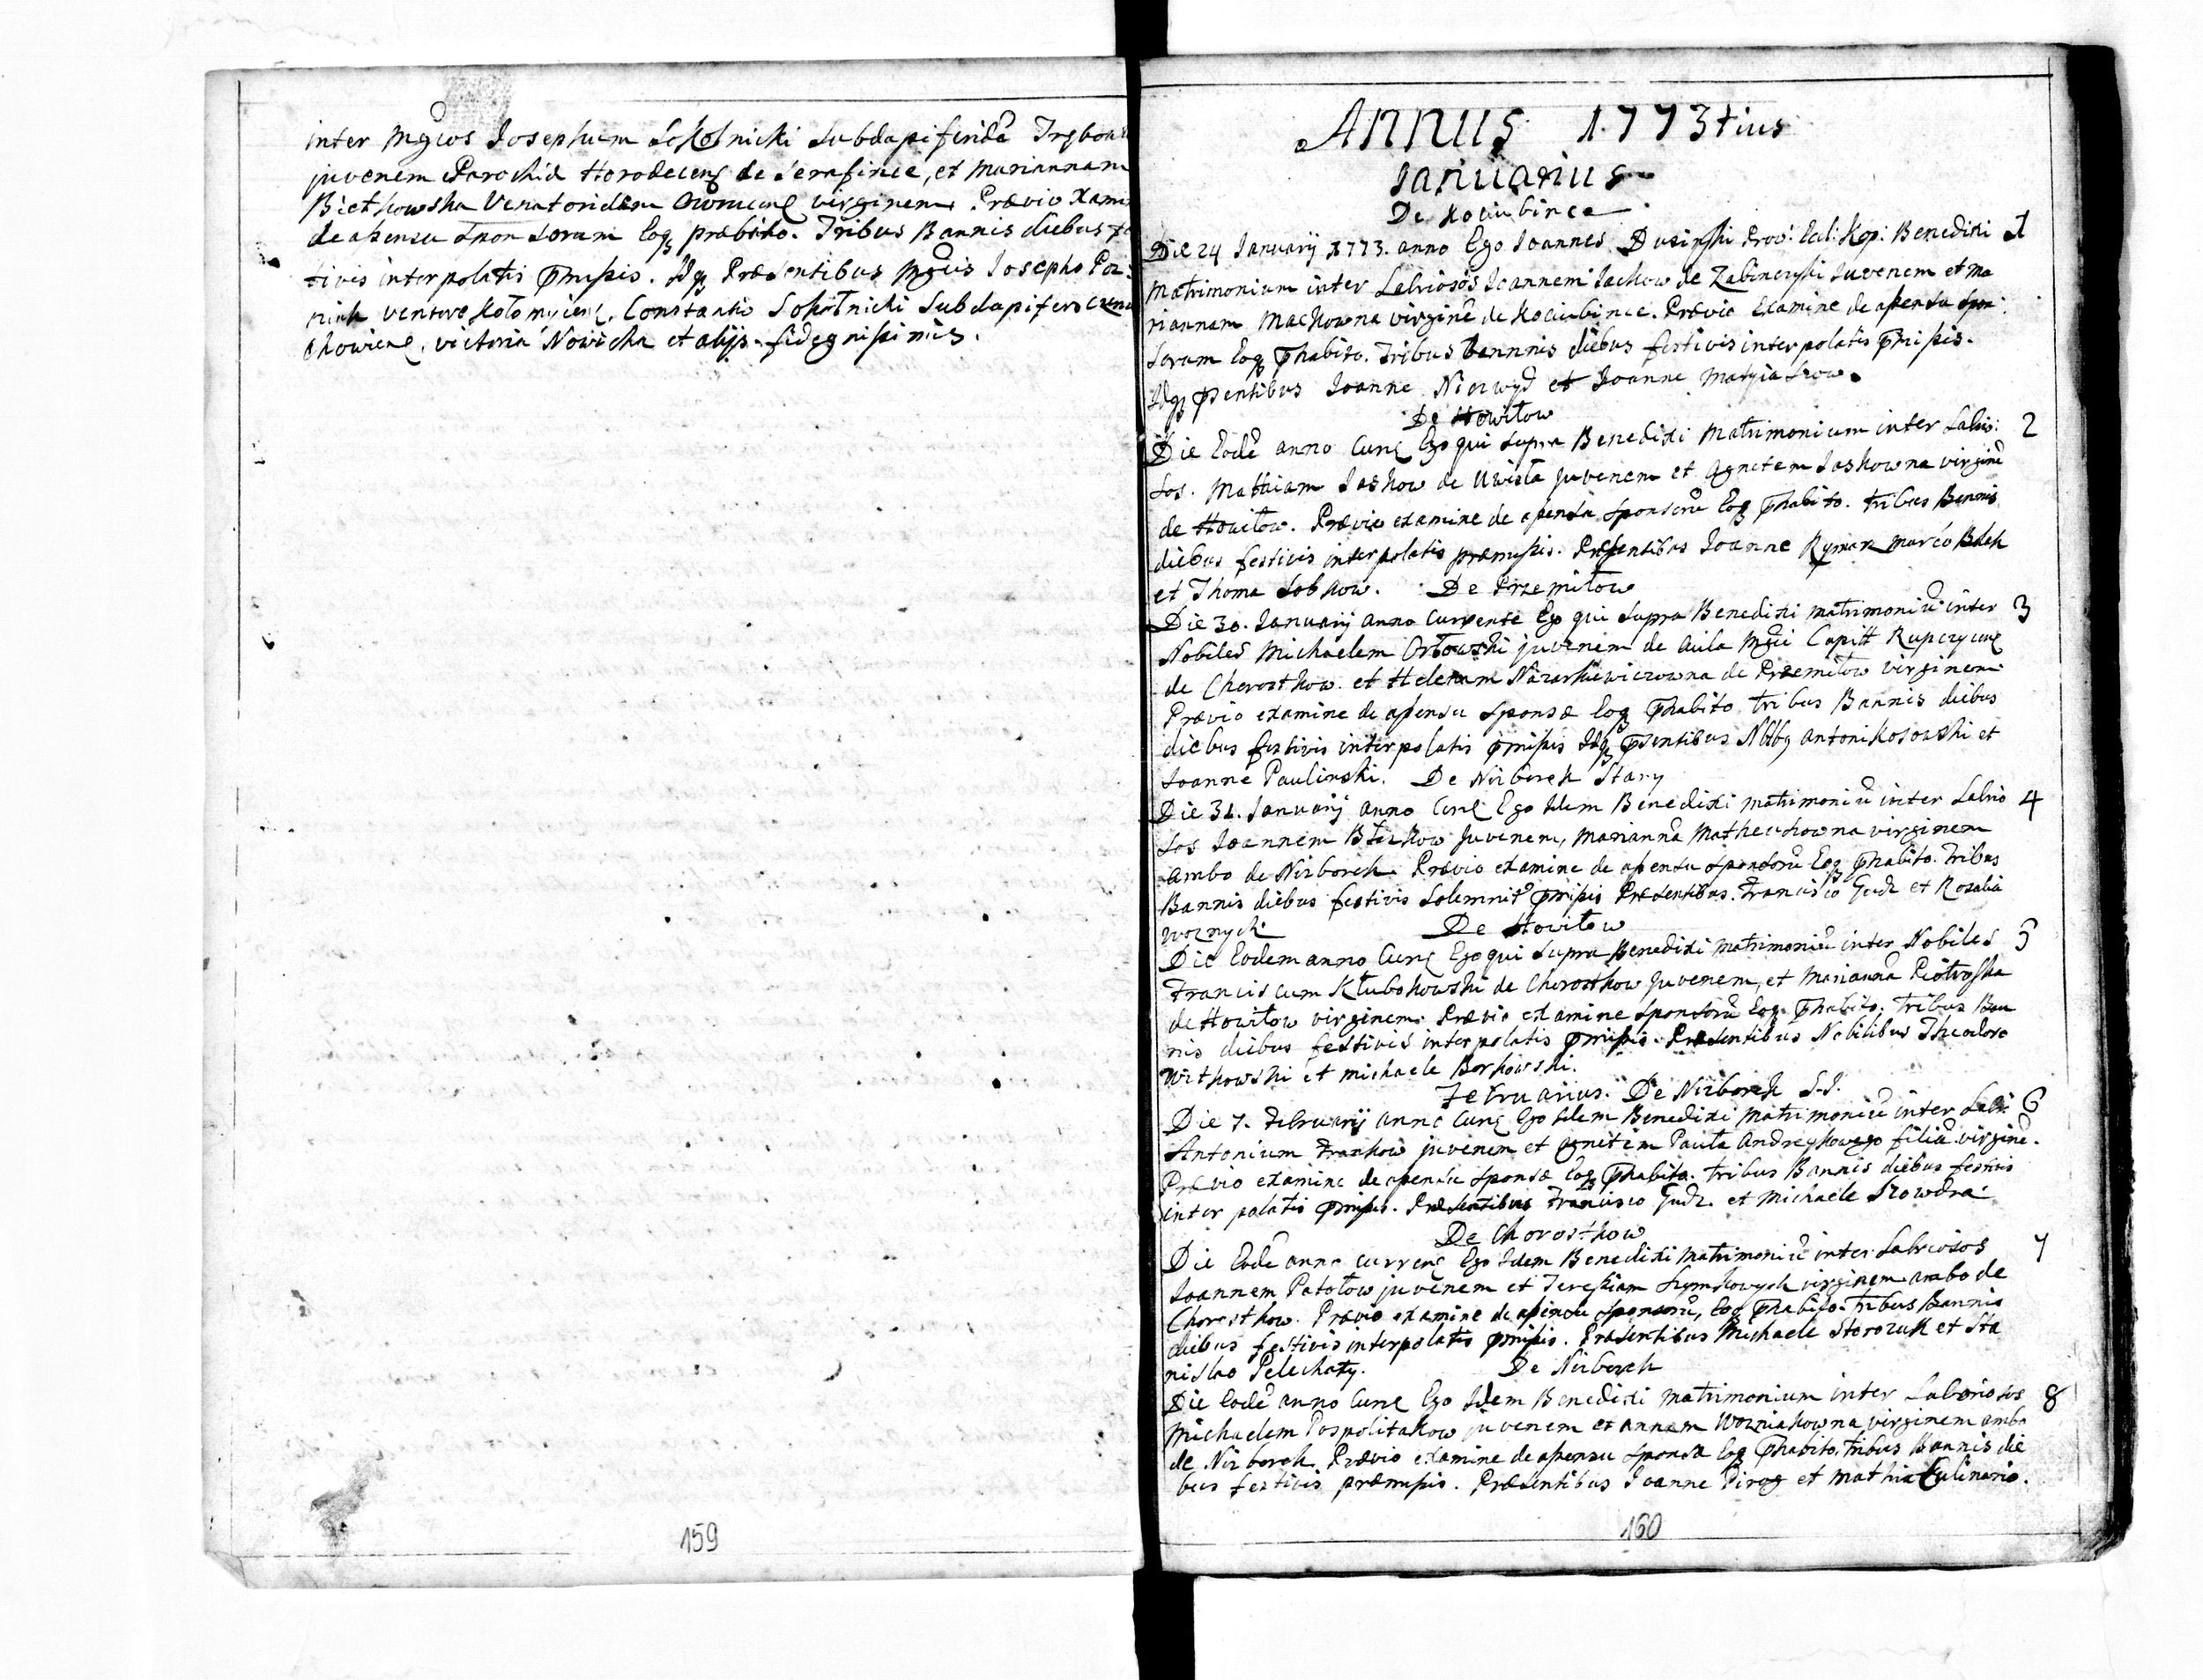 inter Mgcos Josephum Sokolnicki Subdapiferidã Trębow
juvenem Parochiæ Horodecens de Serafince, et Mariannam
Bietkowska Venatoridem Owrucens virginem. Prævio Xami
de assensu Sponsorum Eoq præbito. Tribus Bannis diebus fe
tivis interpolatis præmissis. Idq Præsentibus Mgcis Josepho
Kołomyiens, Constantio Sokolnicki Subdapifero
chowiens, victoria Nowicka et alijs fidegnissimis.
159
Annus 1773tius
Januarius
De Kociubince
Die 24 January 1773. anno Ego Joannes Dusinski Benedixi 1
Matrimonium inter Labriosos Joannem Jackow de Zabinewski Juvenem et Ma
riannam Mackowna virginẽ de Kociubince. Prævio Examine de assensu Spon
sorum Eoq phabito. Tribus bannnis diebus festivis interpolatis pmissis.
Idq psentibus Joanne Niezwyd et Joanne Matyiaszow.
De Howiłow
Die Eodẽ anno Curs Ego qui supra Benedixi Matrimonium inter Labrio: 2
sos. Mathiam Jaskow de Uwisla Juvenem et Agnetem Jaskowna virginẽ
de Howiłow. Prævio examine de assensu Sponsorũ Eoq phabito. tribus Bannis
diebus festivis interpolatis præmissis. Præsentibus Joanne Rymar Marco
et Thoma Sobkow. De Przemiłow
Die 30. January anno Currente Ego qui supra Benedixi matrimoniũ inter 3
Nobiles Michaelem Orłowski juvenem de aula Mgci Capitt Kupczycens
de Chorostkow et Helenam Nazarkiewiczowna de Przemiłow virginem
Prævio examine de assensu Sponsæ Eoq phabito tribus Bannis diebus
diebus festivis interpolatis pmissis Idq psentibus Nobbq Antoni Kosowski et
Joanne Paulinski. De Niżborek Stary
Die 31. January anno Curs Ego Idem Benedixi matrimoniũ inter Labrio 4
sos Joannem Juvenem, Mariannã Matheuchowna virginem
ambo de Niżborek. Prævio examine de assensu sponsorũ Eoq phabito. Tribus
Bannis diebus festivis Solemnitr pmissis Præsentibus. Francisco Gudz et Rosalia
Woznych. De Howiłow
Die Eodem anno Curs Ego qui supra Benedixi Matrimoniũ inter Nobiles 5
Franciscum Kłubokowski de Chorostkow Juvenem, et Mariannã Piotrowska
de Howiłow virginem. Prævio examine Sponsorũ Eoq phabito. Tribus Ban
nis diebus festivis interpolatis pmissis. Præsentibus Nobilibus Theodoro
Witkowski et Michaele Borkowski.
Februarius. De Niżborek S.
Die 7. February anno Curs Ego Idem Benedixi Matrimoniũ inter Labr 6
Antonium Frankow juvenem et Agnetem Pauła Andreykowego filiã virginẽ.
Prævio examine de assensu Sponsæ Eoq phabito. Tribus Bannis diebus festivis
interpolatis pmissis. Præsentibus Francisco Gudz. et Michaele Szowdra.
De Chorostkow
Die Eodẽ anno Currens Ego Idem Benedixi Matrimoniũ inter Labriosos 7
Joannem Patołow juvenem et Teressiam Szymkowych virginem ambo de
Chorostkow. Prævio examine de assensu Sponsorũ, Eoq phabito. Tribus Bannis
diebus festivis interpolatis pmissis. Præsentibus Michaele Storozuk et Sta
nislao Pelechaty. De Niżborek
Die Eodẽ anno Curs Ego Idem Benedixi Matrimonium inter Laboriosos 8
Michaelem Pospolitakow juvenem et annam Wozniakowna virginem ambo
de Niżborek. Prævio examine de assensu Sponsæ Eoq phabito, tribus Bannis die
bus festivis præmissis. Præsentibus Joanne Pirog et Mathia Culinario.
160